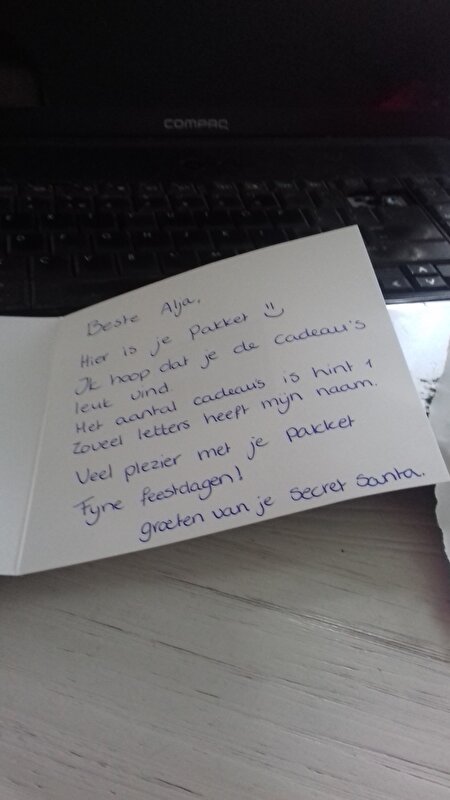 COMPAQ
Beste Alja,
Hier is je pakket :)
Ik hoop dat je de cadeau's
leuk vind.
Het aantal cadeau's is hint 1
Zoveel letters heeft mijn naam.
Veel plezier met je pakket
Fyne feestdagen!
groeten van je Secret Santa.